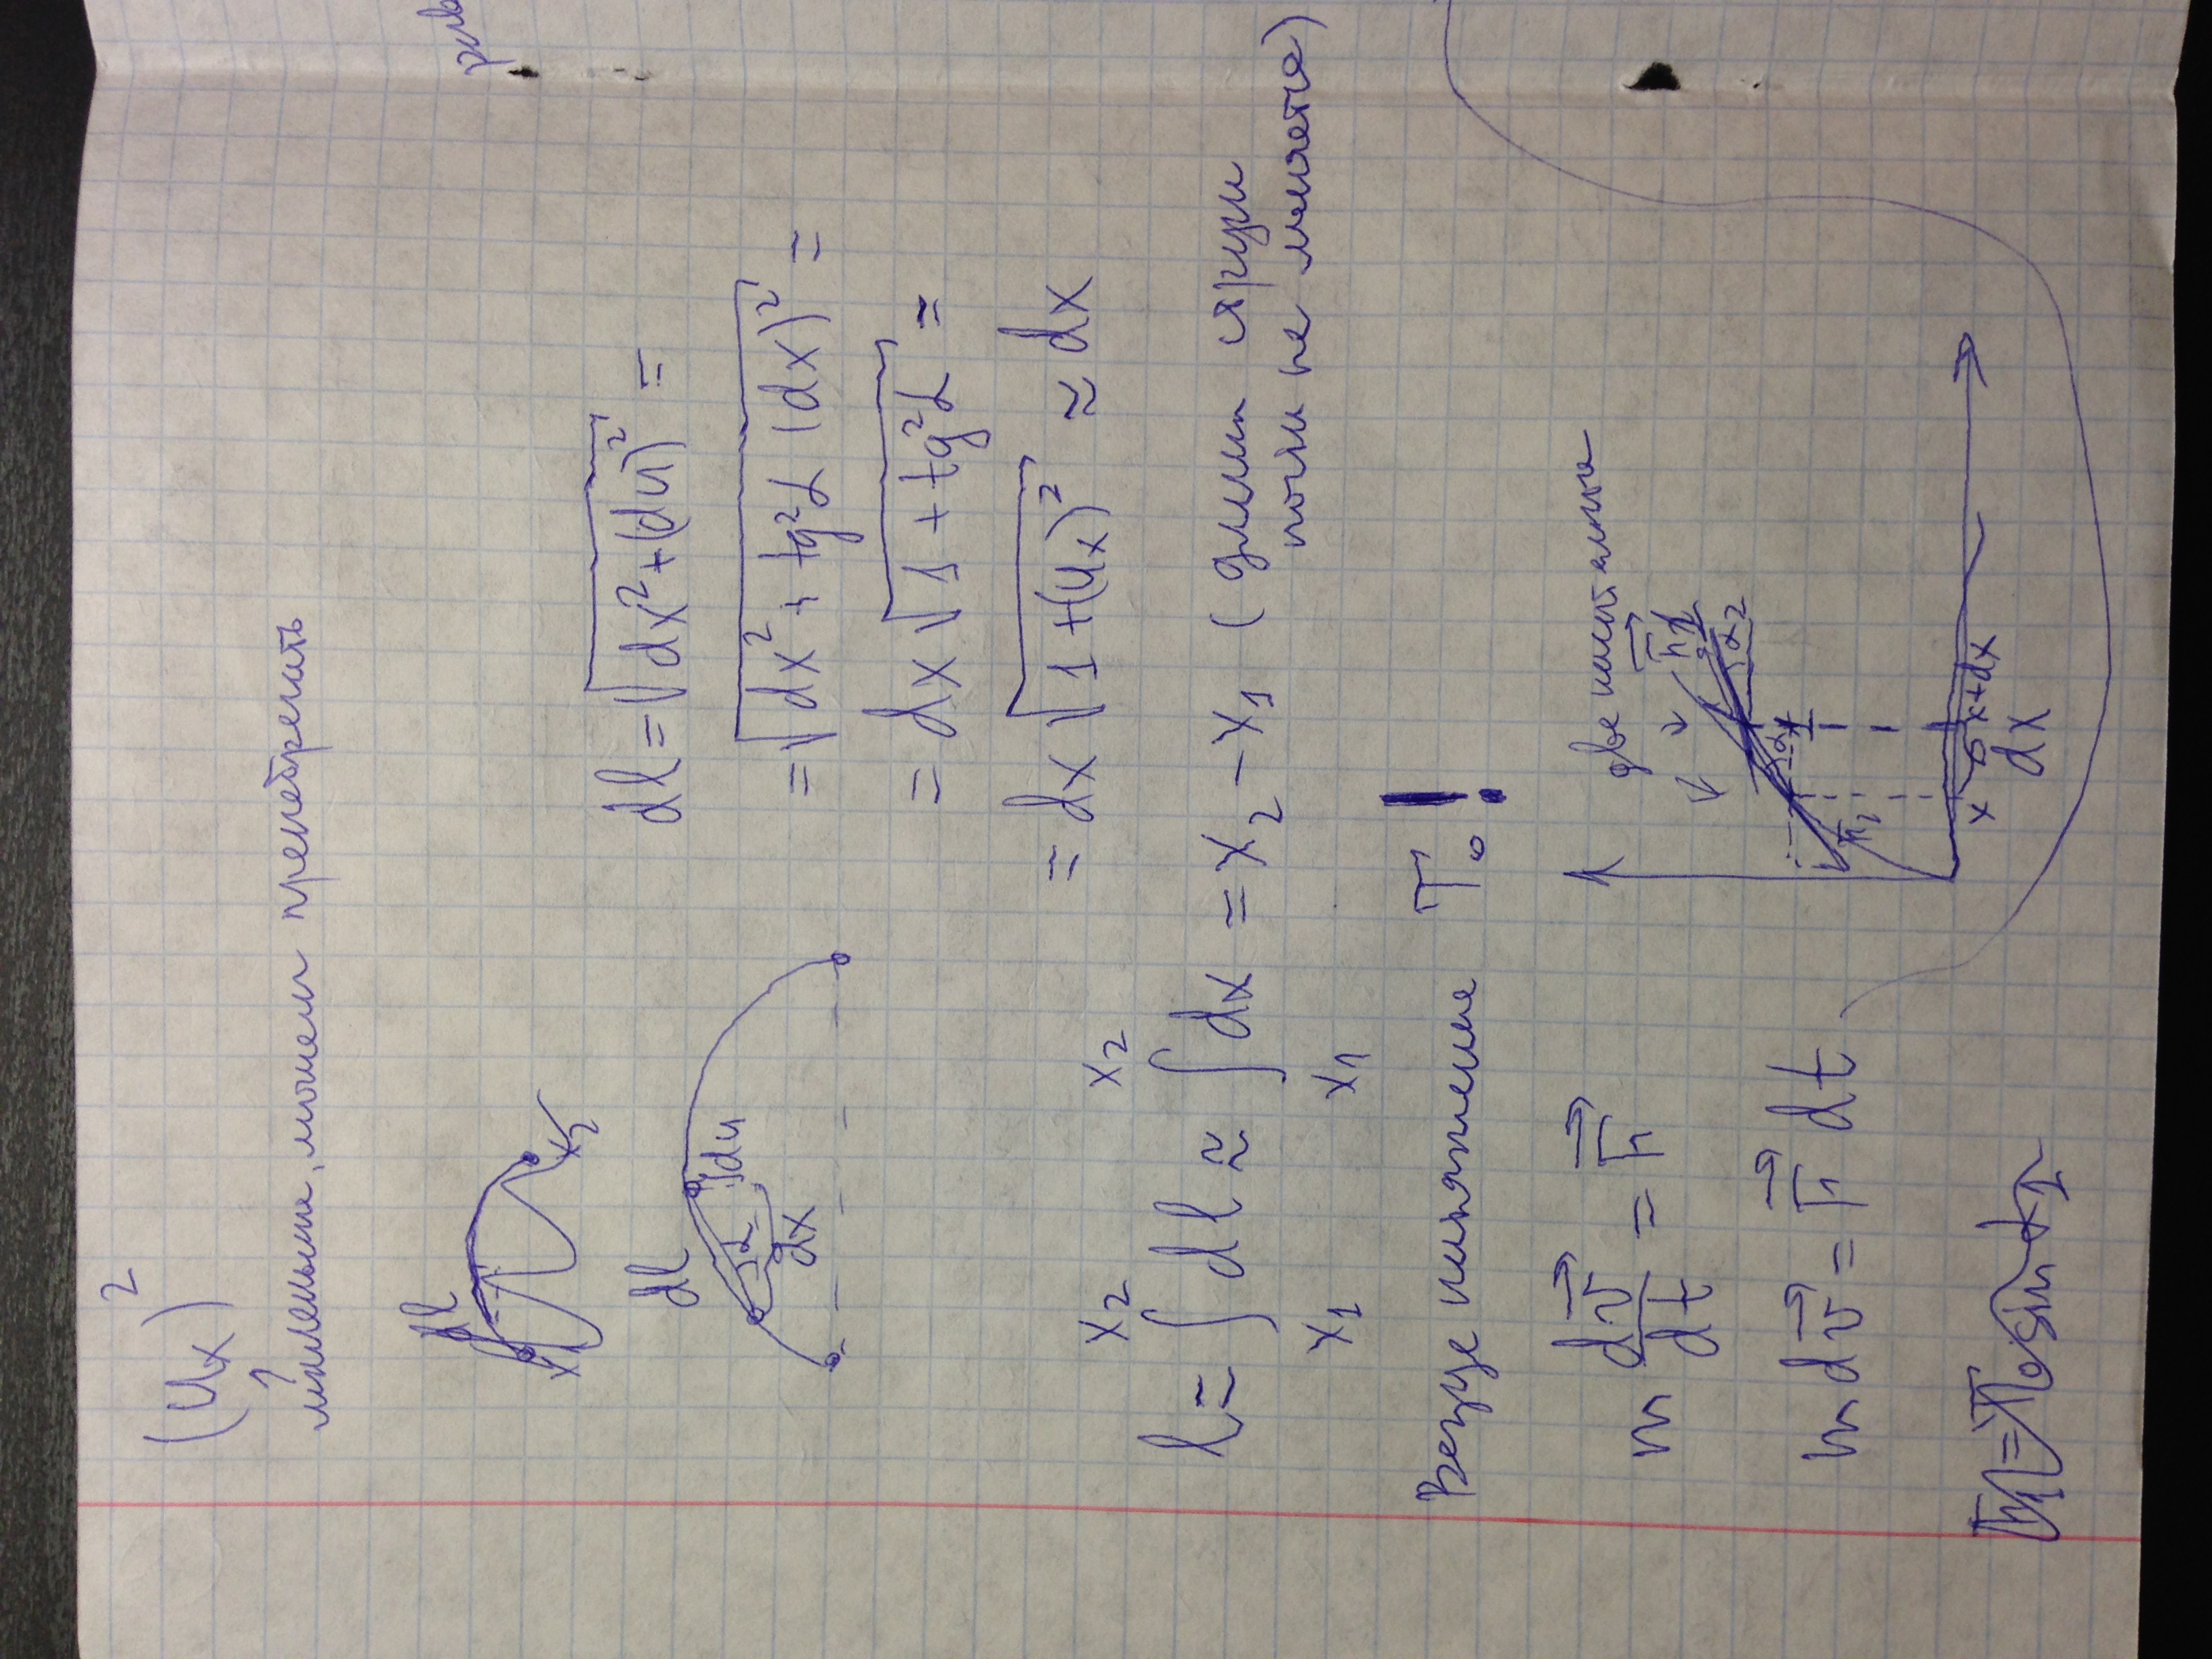 (uₓ)²
маленький, можем пренебрегать
dl
x₁
x₂
dl = √(dx² + (du)²) =
dl
α
du
dx
= √(dx² + tg²α (dx)²) =
= dx √(1 + tg²α) =
= dx √(1 + (uₓ)²) ≈ dx
l = ∫ₓ₁ˣ² dl ≈ ∫ₓ₁ˣ² dx = x₂ - x₁ (длина струны
почти не меняется)
Везде натяжение T₀!
m dv⃗/dt = F⃗
m dv⃗ = F⃗ dt
две касательные
α₂
x
x+dx
dx